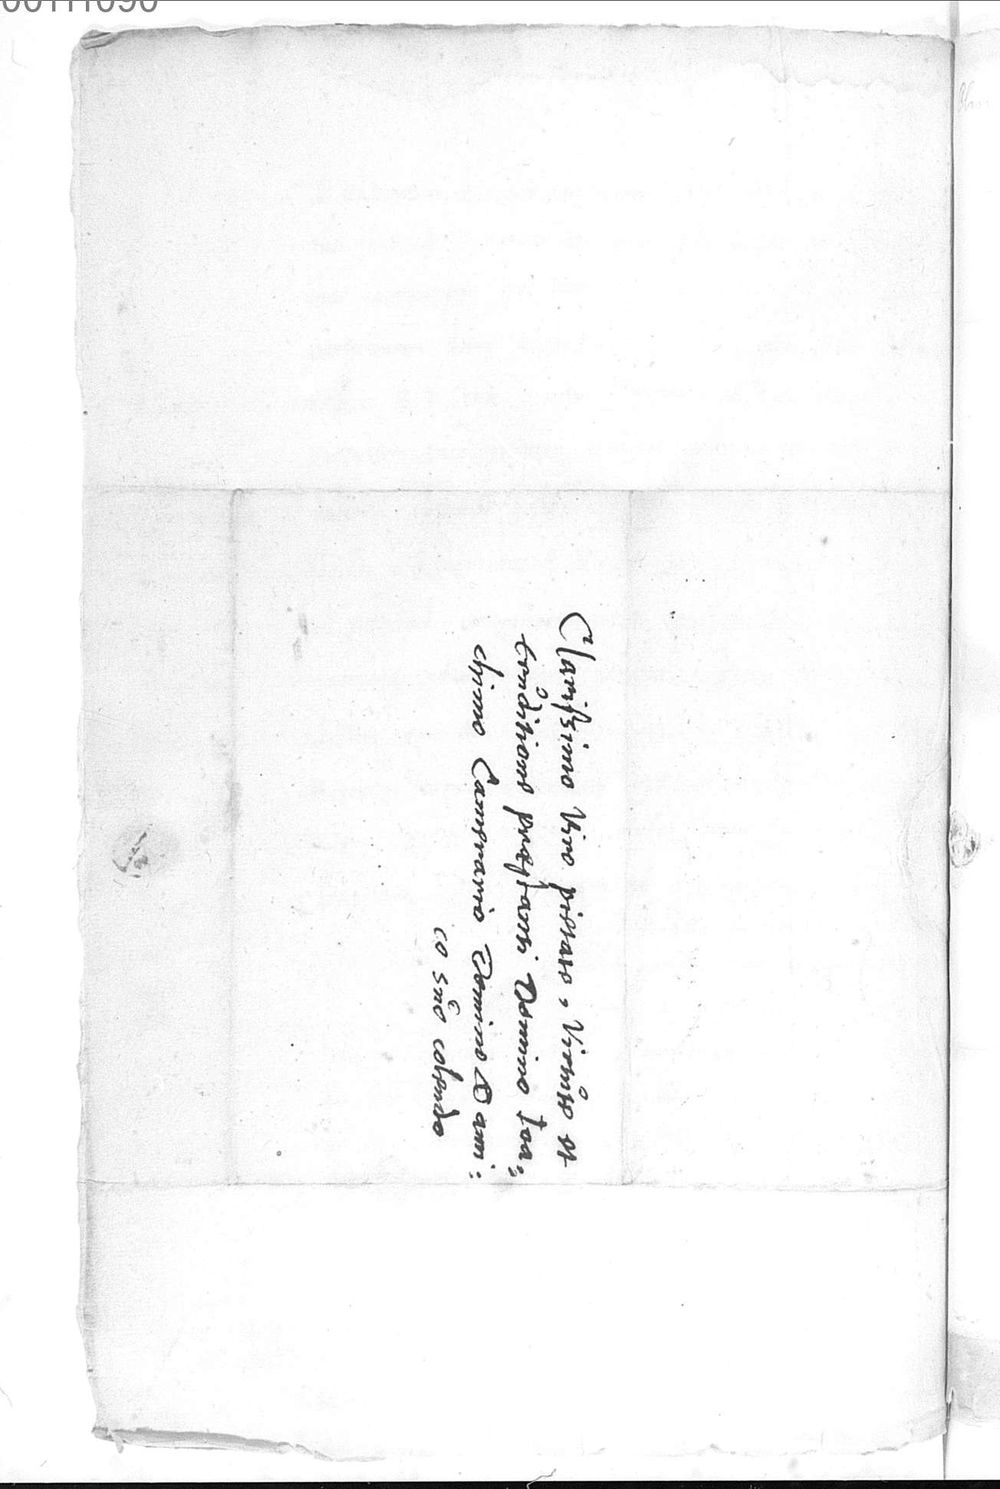 Clarissimo Viro pietate, Virtute et
eruditione præstanti Domino Ioa„
chimo Camerario Domino & ami:
co suo colendo